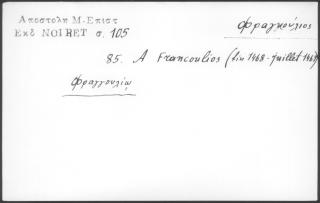 Αποστολη Μ-Επιστ
Εκδ NOIRET σ. 105
Φραγκούλιος
85. A Francoulios (fin 1468 - juillet 1469)
Φραγγουλίῳ